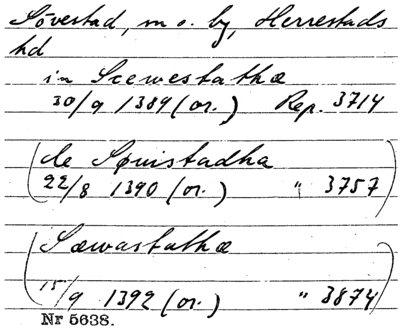 Sövestad, m o. by, Herrestads
hd
in Sæwestathæ
30/9 1389 (or.) Rep. 3714
(de Søuistadha
22/8 1390 (or.) " 3757)
(Sæwastathæ
15/9 1392 (or.) " 3874)
Nr 5638.